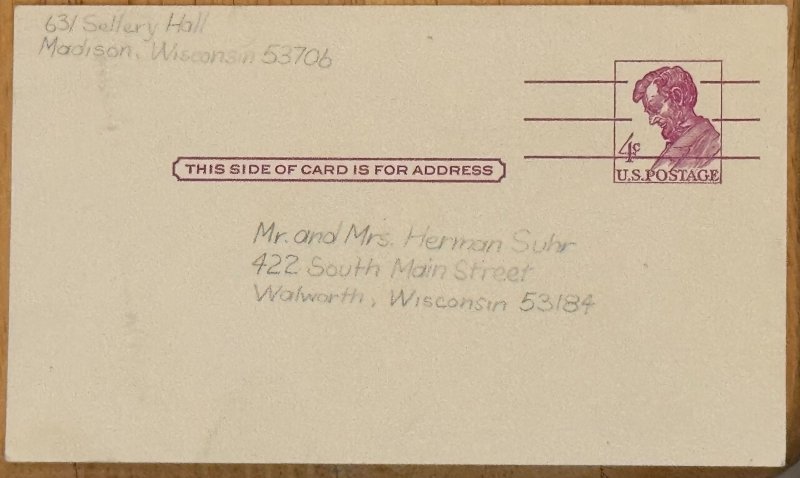 631 Sellery Hall
Madison, Wisconsin 53706
4¢
U.S. POSTAGE
THIS SIDE OF CARD IS FOR ADDRESS
Mr. and Mrs. Herman Suhr
422 South Main Street
Walworth, Wisconsin 53184